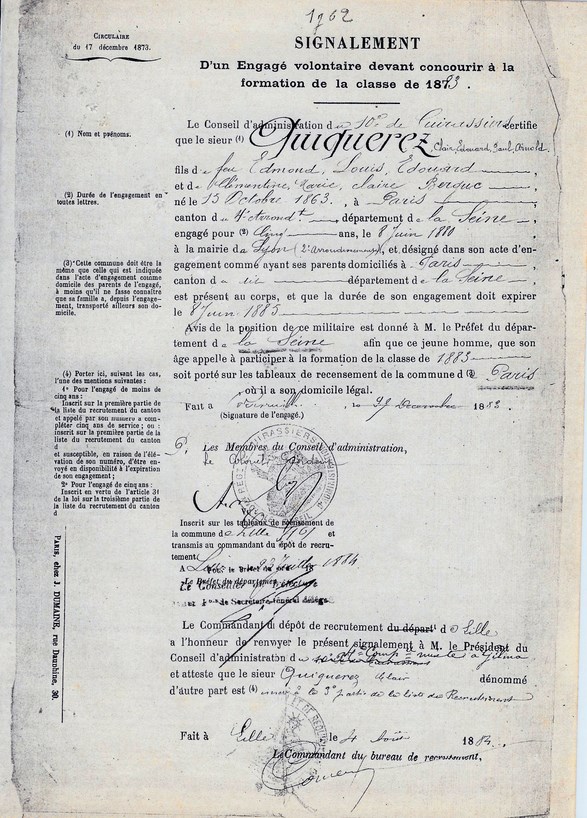 1962
CIRCULAIRE
du 17 décembre 1873.
SIGNALEMENT
D'un Engagé volontaire devant concourir à la
formation de la classe de 1883.
(1) Nom et prénoms.
Le Conseil d'administration du 10e de Cuirassiers certifie
que le sieur (1) Quiquerez, Clair, Edmond, Paul, Arnold
fils de feu Edmond, Louis, Edouard,
et de Clémentine, Marie, Claire
(2) Durée de l'engagement en
toutes lettres.
né le 15 Octobre 1863, à Paris,
canton d 4e Arrondt, département de la Seine,
engagé pour (2) Cinq ans, le 8 Juin 1880
à la mairie de Lyon (2e arrondissement), et désigné dans son acte d'en-
gagement comme ayant ses parents domiciliés à Paris,
canton d département de la Seine,
est présent au corps, et que la durée de son engagement doit expirer
le 8 Juin 1885
(3) Cette commune doit être la
même que celle qui est indiquée
dans l'acte d'engagement comme
domicile des parents de l'engagé,
à moins qu'il ne fasse connaître
que sa famille a, depuis l'engage-
ment, transporté ailleurs son do-
micile.
Avis de la position de ce militaire est donné à M. le Préfet du dépar-
tement de la Seine afin que ce jeune homme, que son
âge appelle à participer à la formation de la classe de 1883
soit porté sur les tableaux de recensement de la commune d Paris
où il a son domicile légal.
(4) Porter ici, suivant les cas,
l'une des mentions suivantes :
1° Pour l'engagé de moins de
cinq ans :
Inscrit sur la première partie de
la liste du recrutement du canton
et appelé par son numéro à com-
pléter cinq ans de service ; ou :
inscrit sur la première partie de la
liste du recrutement du canton
d
et susceptible, en raison de l'élé-
vation de son numéro, d'être en-
voyé en disponibilité à l'expiration
de son engagement ;
2° Pour l'engagé de cinq ans :
Inscrit en vertu de l'article 31
de la loi sur la troisième partie de
la liste du recrutement du canton
d
PARIS, chez J. DUMAINE, rue Dauphine, 30.
Fait à le Décembre 1883.
(Signature de l'engagé.)
Les Membres du Conseil d'administration,
Inscrit sur les tableaux de recensement de
la commune de Lille et
transmis au commandant du dépôt de recru-
tement.
A Juillet 1884
Le Conseiller de Préfecture
Secrétaire Général délégué
Le Commandant du dépôt de recrutement du départ d Lille
a l'honneur de renvoyer le présent signalement à M. le Président du
Conseil d'administration d
et atteste que le sieur Quiquerez Clair dénommé
d'autre part est (4) à la 3e partie de la liste de Recrutement
Fait à Lille le 4 Août 1884.
Le Commandant du bureau de recrutement,